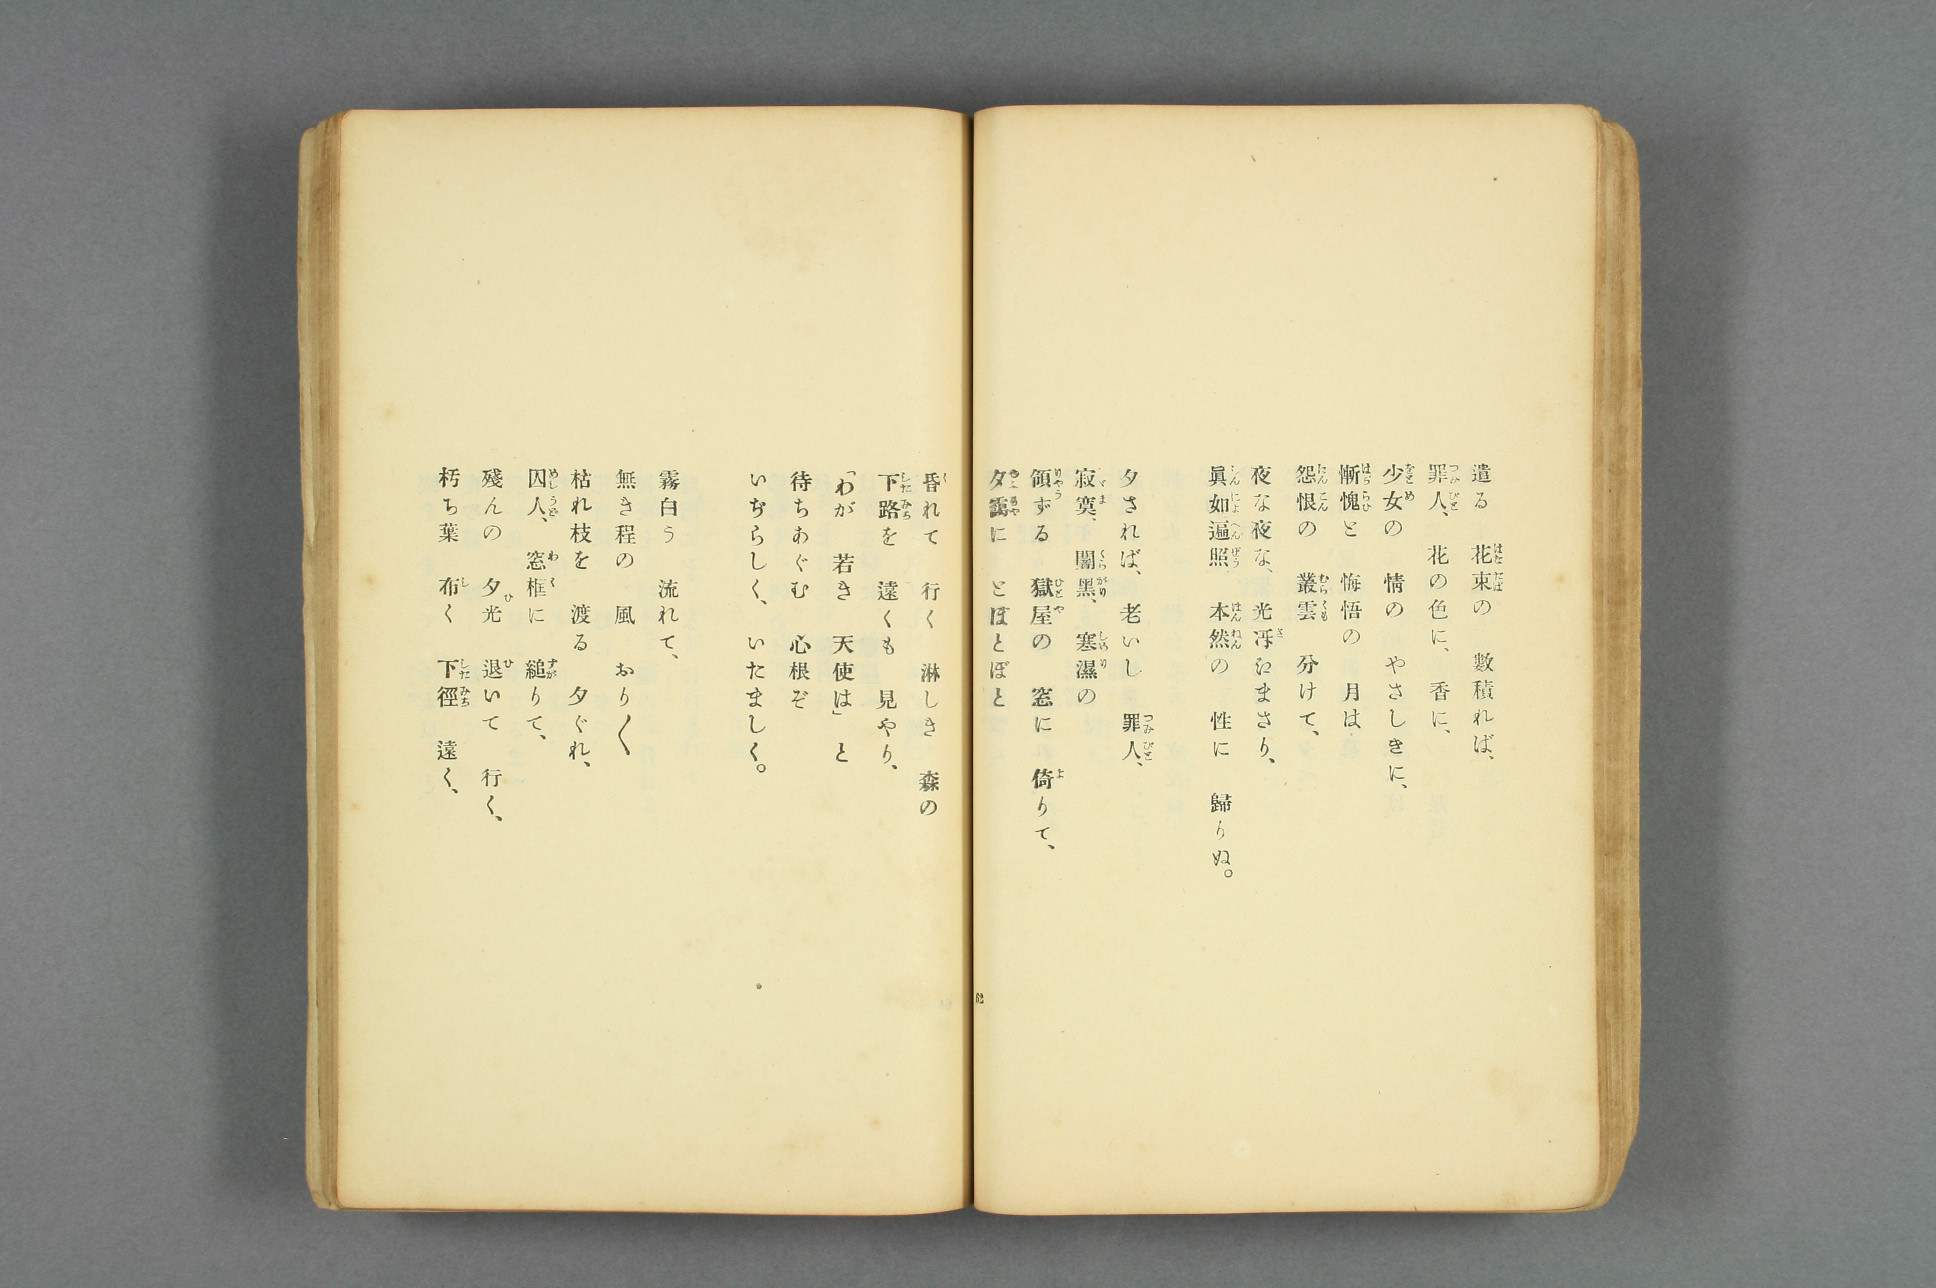 遣る　花束の　數積れば、
罪人、花の色に、香に、
少女の　情の　やさしきに、
慚愧と　悔悟の　月は、
怨恨の　叢雲　分けて、
夜な夜な、光冴えまさり、
眞如遍照、本然の　性に　歸りぬ。
夕されば、老いし　罪人、
寂寞、闇黑、寒濕の
領ずる　獄屋の　窓に　倚りて、
夕靄に　とぼとぼと
昏れて　行く　淋しき　森の
下路を　遠くも　見やり、
「わが　若き　天使は」と
待ちあぐむ　心根ぞ
いぢらしく、いたましく。
霧白う　流れて、
無き程の　風　おり〱
枯れ枝を　渡る　夕ぐれ、
囚人、窓框に　縋りて、
殘んの　夕光　退いて　行く、
朽ち葉　布く　下徑　遠く、
62